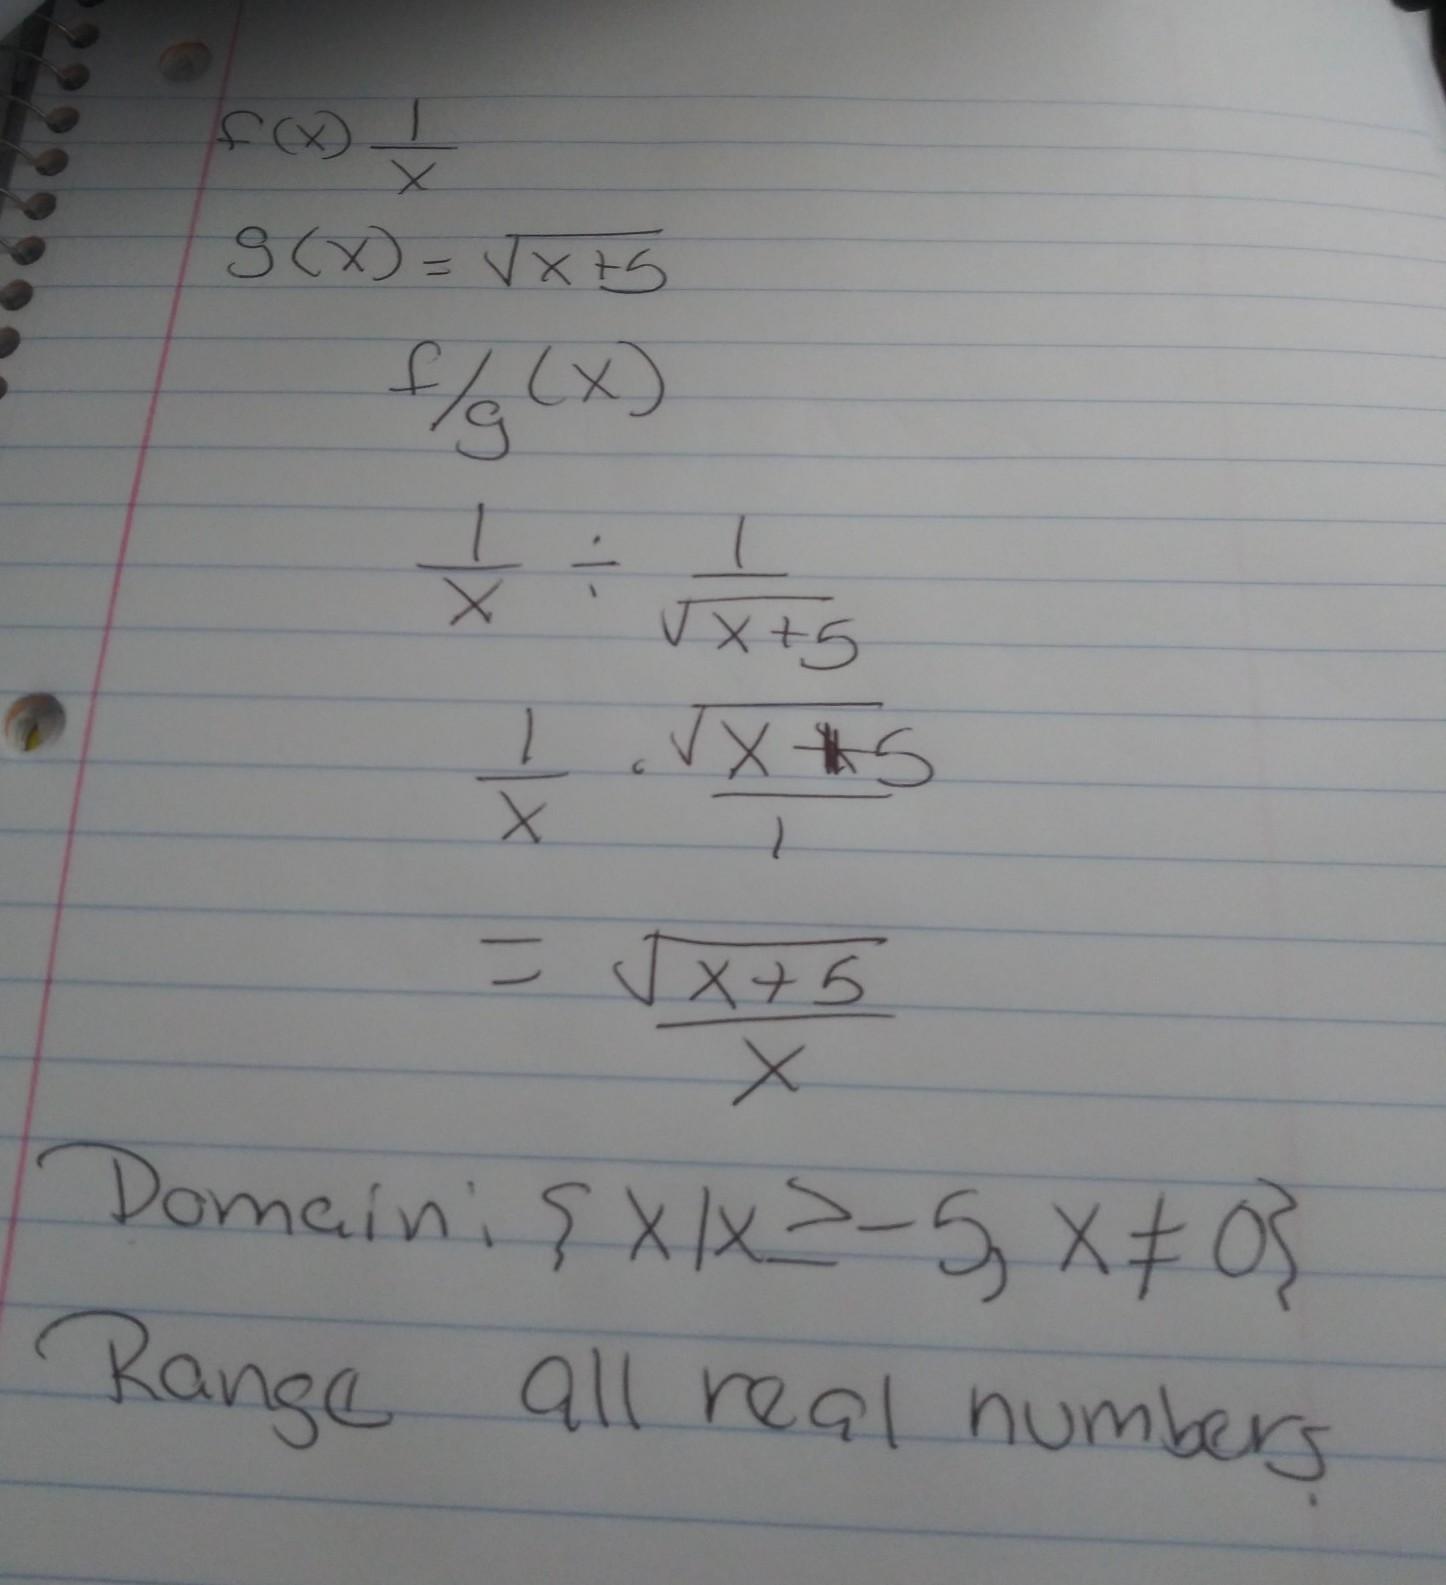 f(x) 1/x
g(x) = √x+5
f/g (x)
1/x ÷ 1/√x+5
1/x · √x+5/1
= √x+5/x
Domain: {x|x≥-5, x≠0}
Range all real numbers.